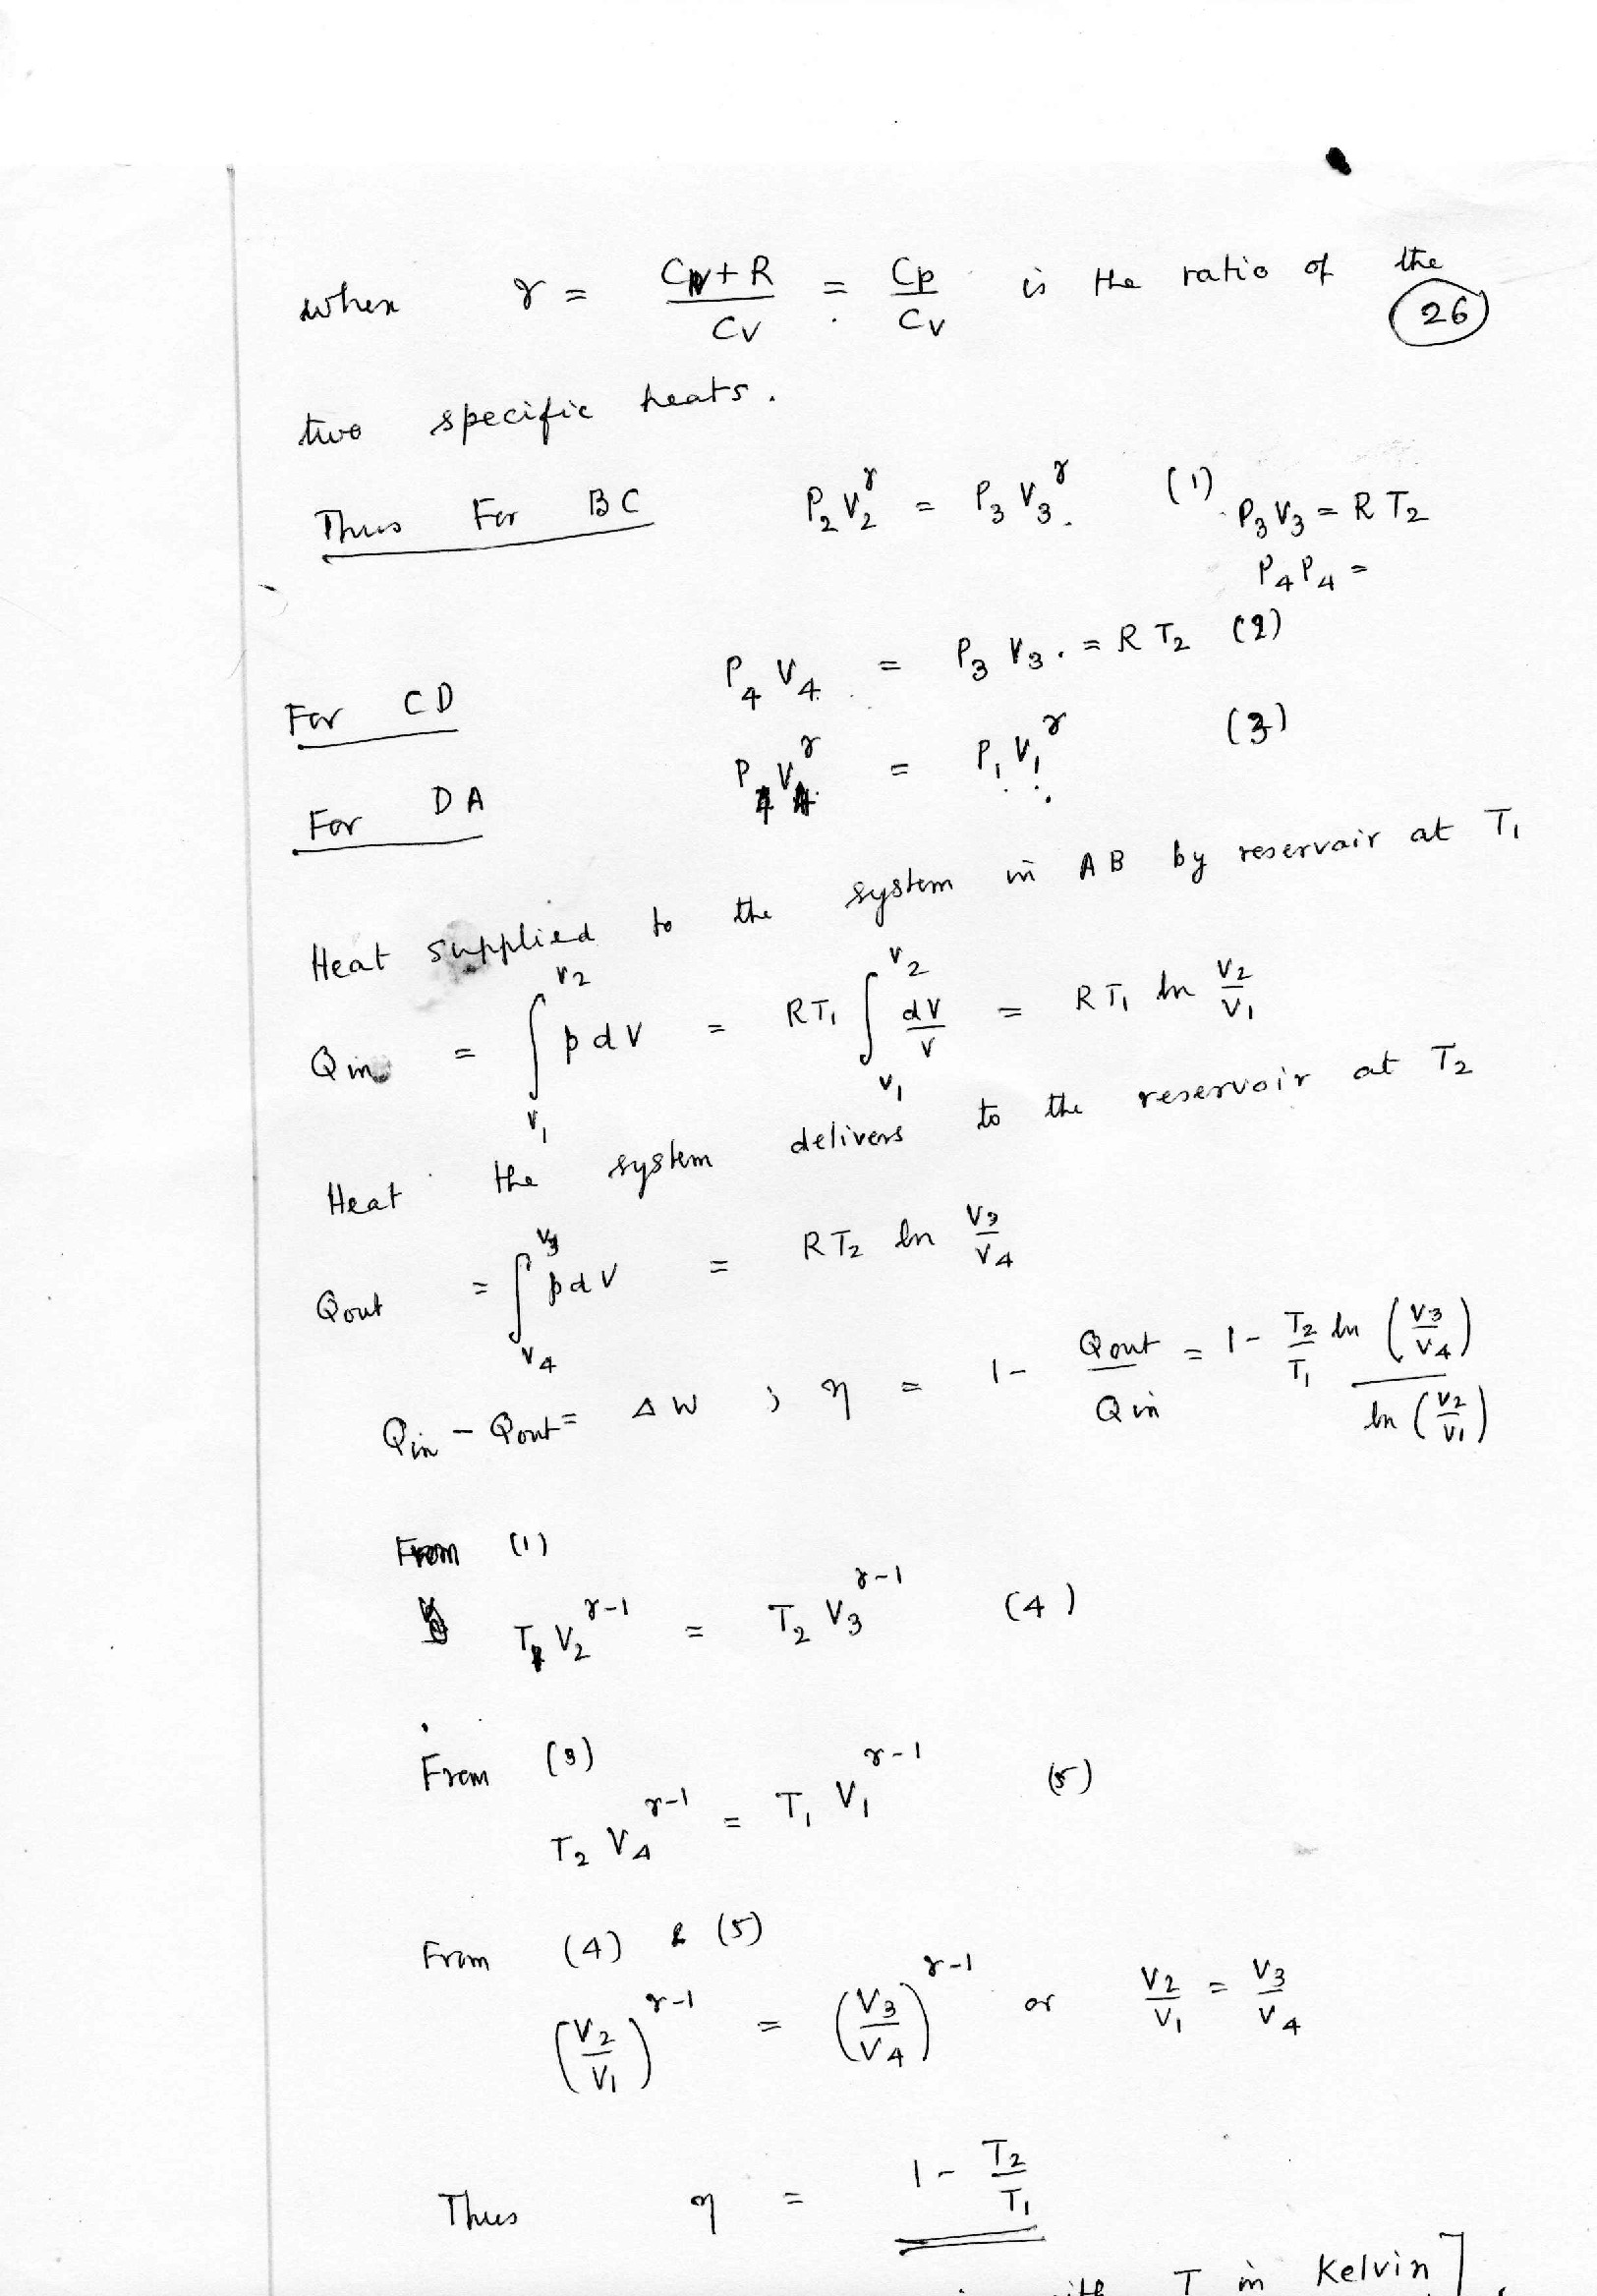 when γ = (Cv + R)/Cv = Cp/Cv is the ratio of the
(26)
two specific heats.
Thus For BC P₂V₂^γ = P₃V₃^γ (1)
P₃V₃ = RT₂
P₄P₄ =
For CD P₄V₄ = P₃V₃ = RT₂ (2)
For DA P₄V₄^γ = P₁V₁^γ (3)
Heat supplied to the system in AB by reservair at T₁
Qin = ∫_{V₁}^{V₂} pdV = RT₁ ∫_{V₁}^{V₂} dV/V = RT₁ ln V₂/V₁
Heat the system delivers to the reservoir at T₂
Qout = ∫_{V₄}^{V₃} pdV = RT₂ ln V₃/V₄
Qin - Qout = ΔW ; η = 1 - Qout/Qin = 1 - T₂/T₁ ln(V₃/V₄)/ln(V₂/V₁)
From (1)
T₁V₂^{γ-1} = T₂V₃^{γ-1} (4)
From (3)
T₂V₄^{γ-1} = T₁V₁^{γ-1} (5)
From (4) & (5)
(V₂/V₁)^{γ-1} = (V₃/V₄)^{γ-1} or V₂/V₁ = V₃/V₄
Thus η = 1 - T₂/T₁
with T in Kelvin]